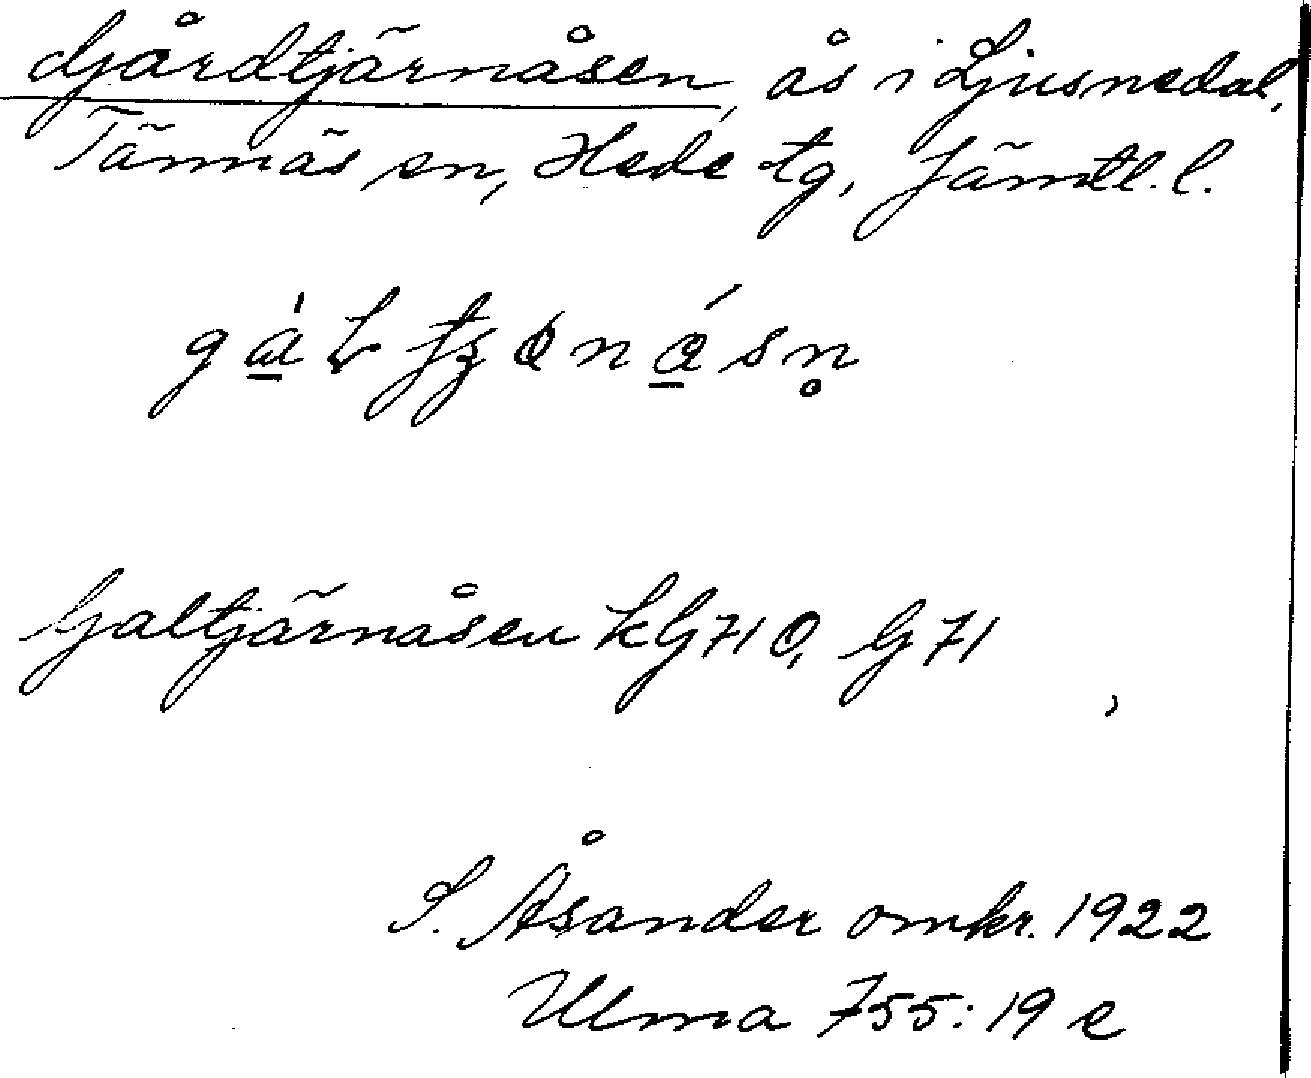 Gårdtjärnåsen, ås i Ljusnedal,
Tännäs sn, Hede tg, Jämtl. l.
Galtjärnåsen kG71 O, G71
S. Åsander omkr. 1922
Ulma 755:19 e